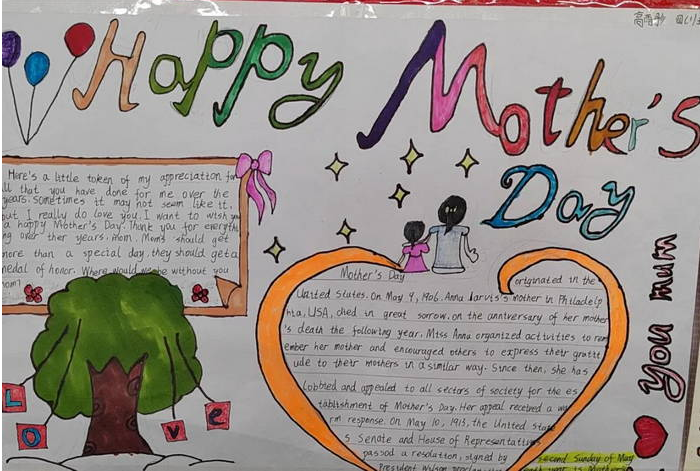 Happy Mother's
Day
Here's a little token of my appreciation for
all that you have done for me over the
years. Sometimes it may not seem like it,
but I really do love you. I want to wish you
a happy Mother's Day. Thank you for everythi
ng over ther years, mom. Moms should get
more than a special day, they should get a
medal of honor. Where would we be without you
mom?
Mother's Day originated in the
United States. On May 9, 1906, Anna Jarvis's mother in Philadelp
hia, USA, died in great sorrow. on the anniversary of her mother
's death the following year, Miss Anna organized activities to rem
ember her mother and encouraged others to express their gratit
ude to their mothers in a similar way. Since then, she has
lobbied and appealed to all sectors of society for the es
tablishment of Mother's Day. Her appeal received a wa
rm response. On May 10, 1913, the United State
s Senate and House of Representatives
passed a resolution, signed by
President Wilson
second Sunday of May
Love
you mum